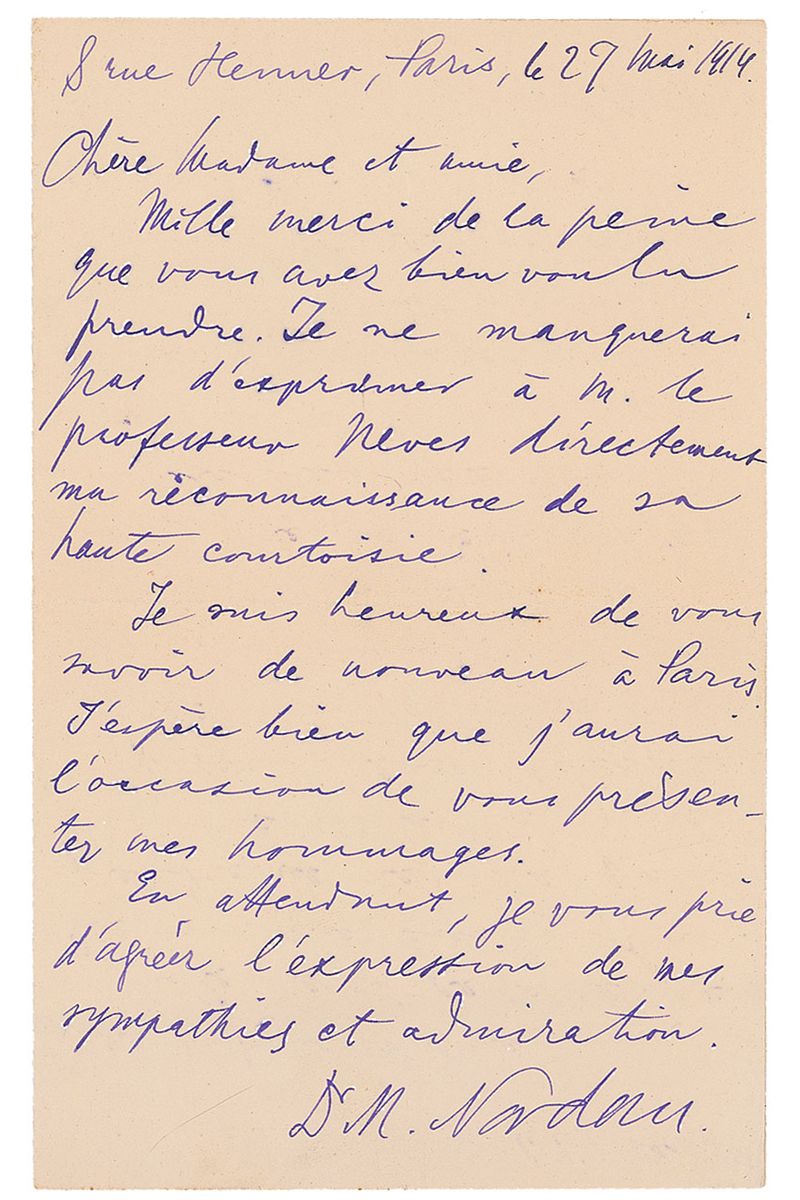 8 rue Henner, Paris, le 27 Mai 1914.
Chère Madame et amie,
Mille merci de la peine
que vous avez bien voulu
prendre. Je ne manquerai
pas d'exprimer à M. le
professeur Neves directement
ma reconnaissance de sa
haute courtoisie.
Je suis heureux de vous
savoir de nouveau à Paris.
J'espère bien que j'aurai
l'occasion de vous présen-
ter mes hommages.
En attendant, je vous prie
d'agréer l'expression de mes
sympathies et admiration.
Dr M. Nordau.